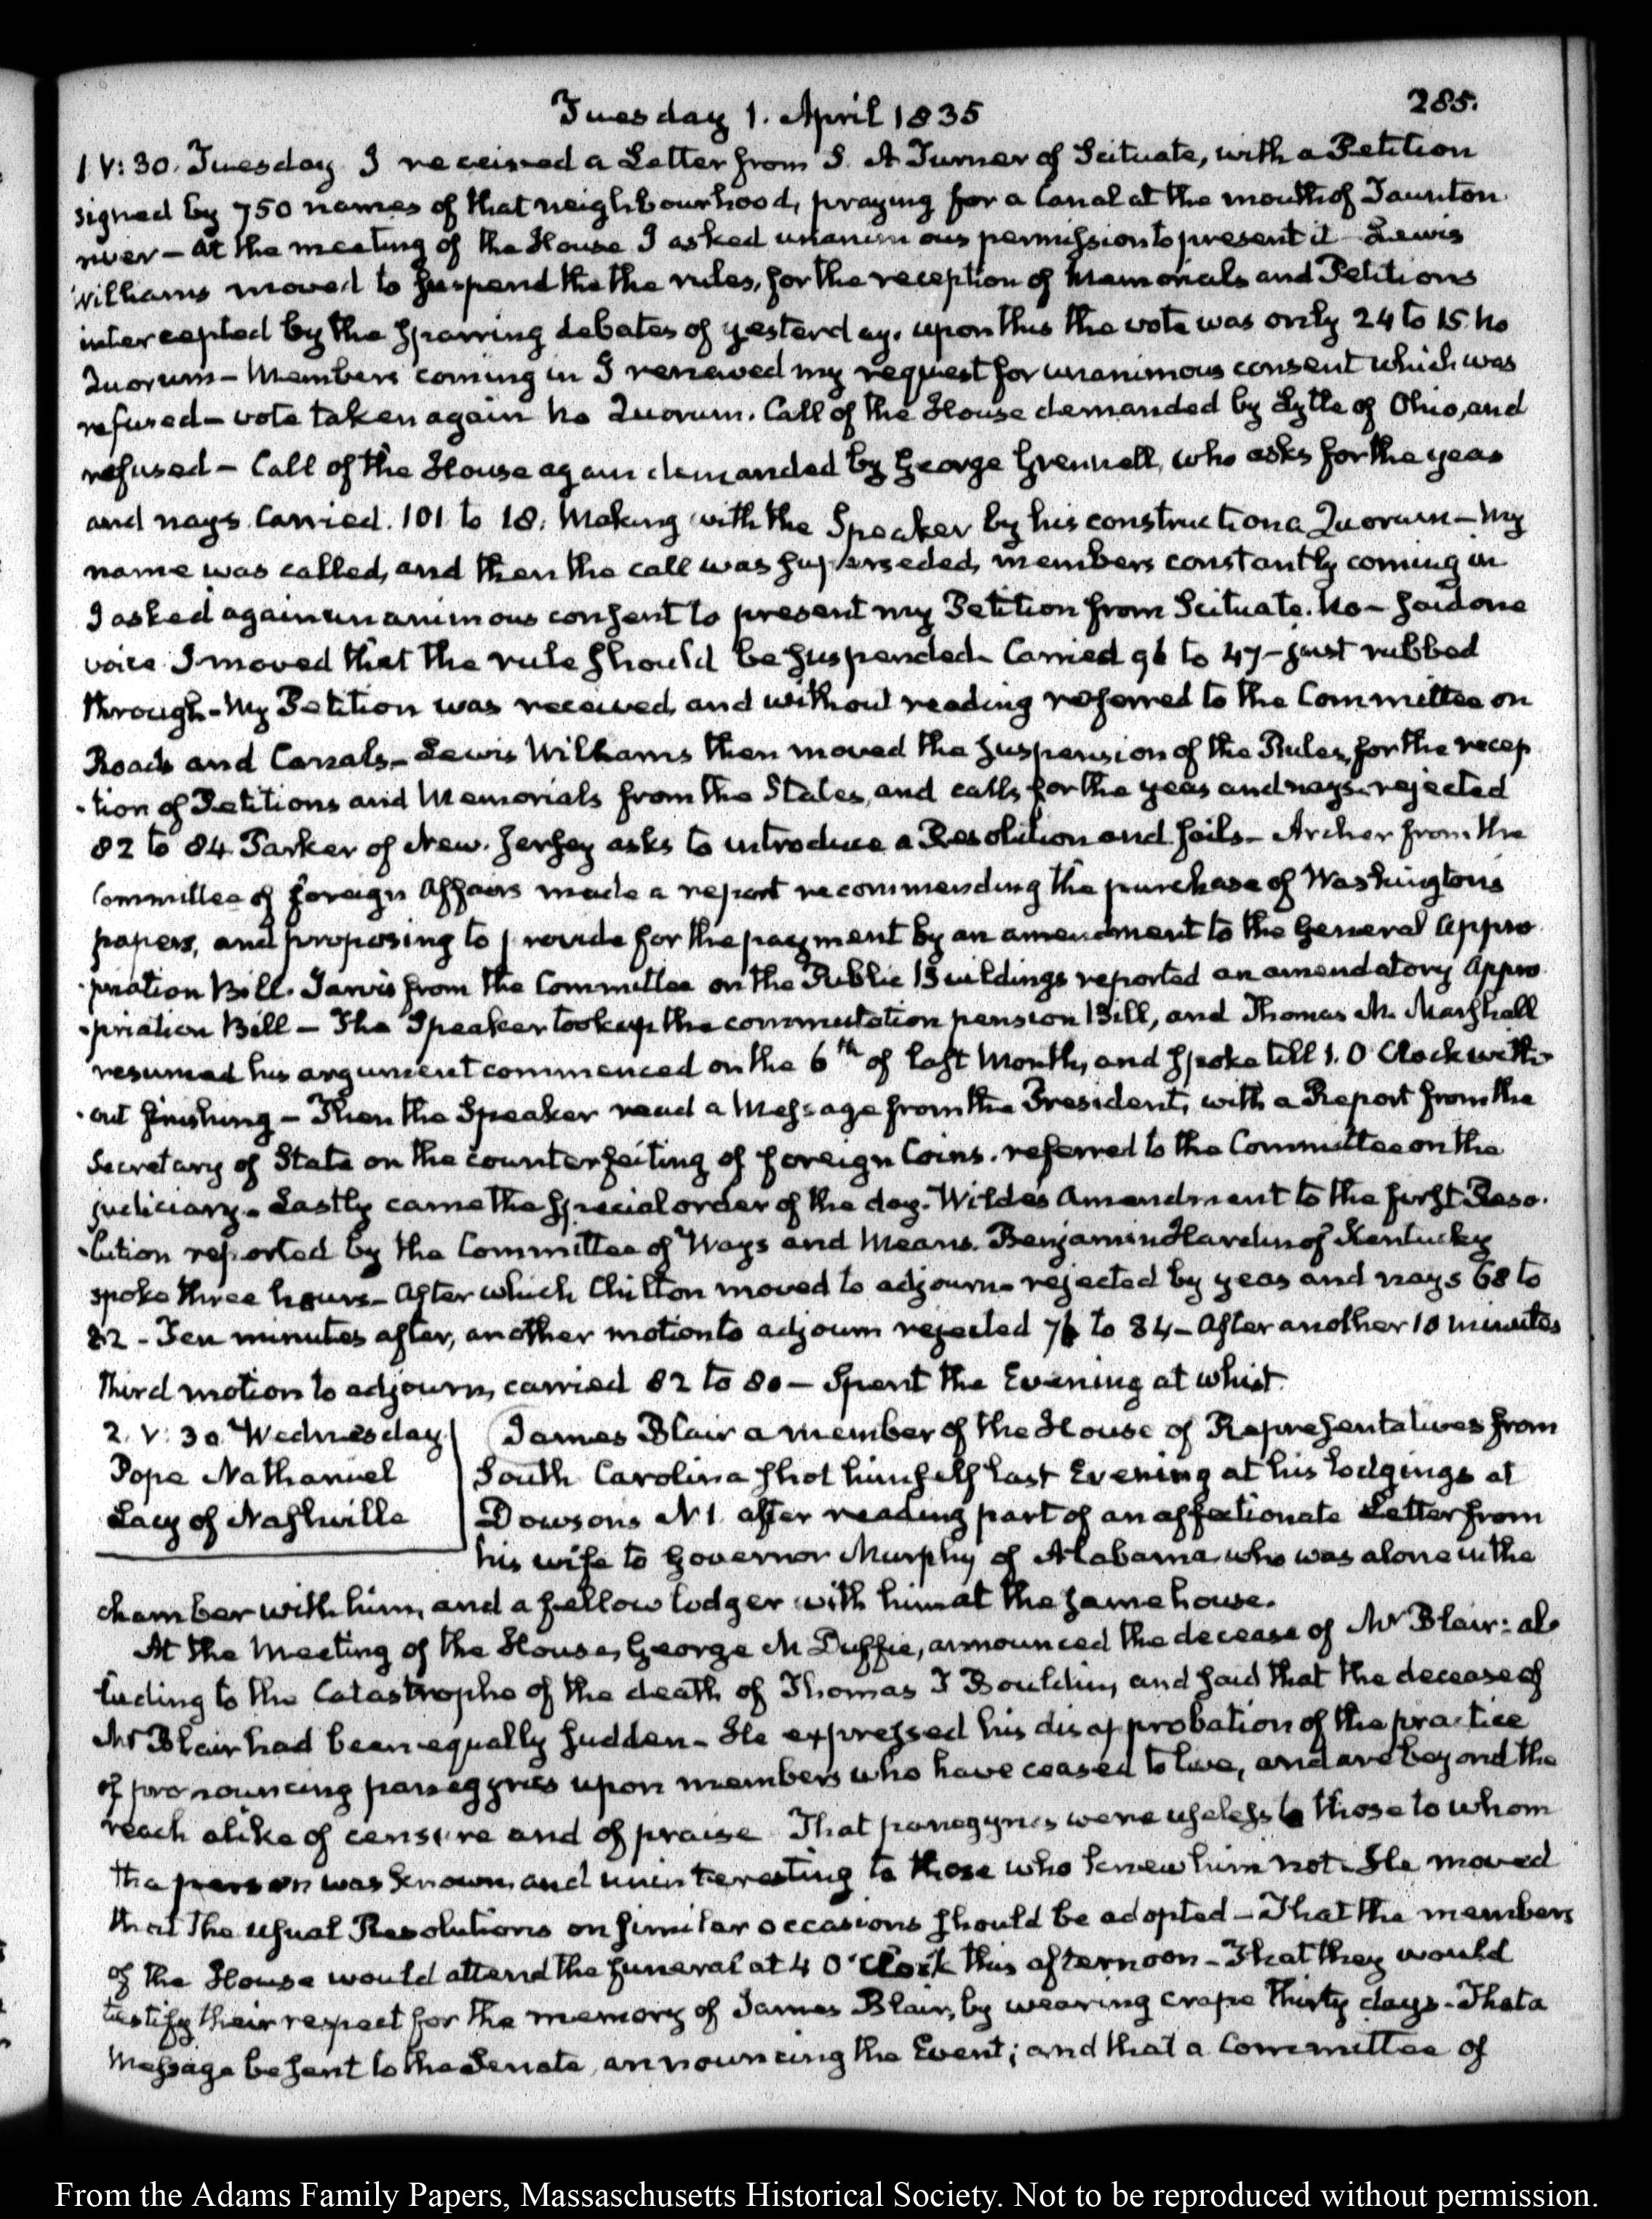 Tuesday 1. April 1835
285.
1. V:30. Tuesday. I received a Letter from S. A Turner of Scituate, with a Petition
signed by 750 names of that neighbourhood, praying for a Canal at the mouth of Taunton
river — At the meeting of the House I asked unanimous permission to present it — Lewis
Williams moved to suspend the the rules, for the reception of Memorials and Petitions
intercepted by the sparring debates of yesterday. upon this the vote was only 24 to 15. no
Quorum — Members coming in I renewed my request for unanimous consent which was
refused — vote taken again no Quorum. Call of the House demanded by Lytle of Ohio, and
refused — Call of the House again demanded by George Grennell, who asks for the yeas
and nays. Carried. 101 to 18. Making with the Speaker by his construction a Quorum — My
name was called, and then the call was superseded, members constantly coming in
I asked again unanimous consent to present my Petition from Scituate. No — said one
voice I moved that the rule should be suspended — Carried 96 to 47 — just rubbed
through — My Petition was received, and without reading referred to the Committee on
Roads and Canals — Lewis Williams then moved the suspension of the Rules, for the recep
-tion of Petitions and Memorials from the States, and calls for the yeas and nays. rejected
82 to 84. Parker of New. Jersey asks to introduce a Resolution and fails — Archer from the
Committee of foreign Affairs made a report recommending the purchase of Washington's
papers, and proposing to provide for the payment by an amendment to the General Appro
-priation Bill. Jarvis from the Committee on the Public Buildings reported an amendatory Appro
-priation Bill — The Speaker took up the commutation pension Bill, and Thomas A. Marshall
resumed his argument commenced on the 6th of last Month, and spoke till 1. O'Clock with-
-out finishing — Then the Speaker read a Message from the President, with a Report from the
Secretary of State on the counterfeiting of foreign Coins. referred to the Committee on the
judiciary — Lastly came the special order of the day. Wilde's Amendment to the first Reso-
-lution reported by the Committee of Ways and Means. Benjamin Hardin of Kentucky
spoke three hours — After which Chilton moved to adjourn — rejected by yeas and nays 68 to
82 — Ten minutes after, another motion to adjourn rejected 76 to 84 — After another 10 minutes
third motion to adjourn, carried 82 to 80 — Spent the Evening at whist.
2. V:30. Wednesday.
Pope Nathaniel
Lacy of Nashville
James Blair a member of the House of Representatives from
South Carolina shot himself last Evening at his lodgings at
Dowson's N 1. after reading part of an affectionate Letter from
his wife to Governor Murphy of Alabama who was alone in the
chamber with him, and a fellow lodger with him at the same house.
At the Meeting of the House, George McDuffie, announced the decease of Mr Blair: al-
luding to the Catastrophe of the death of Thomas T Bouldin, and said that the decease of
Mr Blair had been equally sudden — He expressed his disapprobation of the practice
of pronouncing panegyrics upon members who have ceased to live, and are beyond the
reach alike of censure and of praise That panegyrics were useless to those to whom
the person was known, and uninteresting to those who knew him not. He moved
that the usual Resolutions on similar occasions should be adopted — That the members
of the House would attend the funeral at 4 O'Clock this afternoon — That they would
testify their respect for the memory of James Blair, by wearing crape thirty days — That a
Message be sent to the Senate, announcing the Event; and that a Committee of
From the Adams Family Papers, Massaschusetts Historical Society. Not to be reproduced without permission.